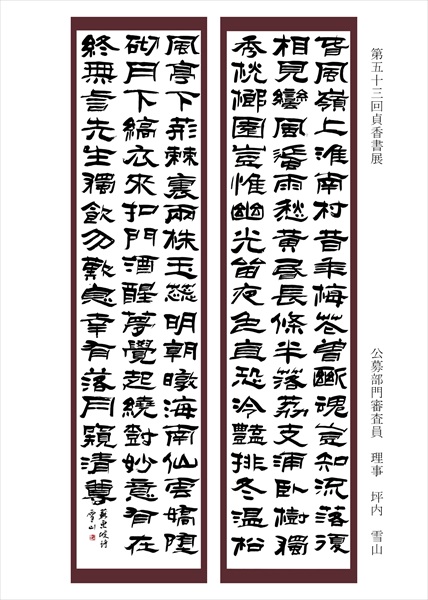 第五十三回貞香書展
公募部門審査員　理事　坪内　雪山
春風嶺上淮南村昔年梅花曾斷魂豈知流落復
相見蠻風蜑雨愁黃昏長條半落荔支浦臥樹獨
秀桄榔園豈惟幽光留夜色直恐冷豔排冬温松
風亭下荊棘裏兩株玉蕊明朝暾海南仙雲嬌墮
砌月下縞衣來扣門酒醒夢覺起繞樹妙意有在
終無言先生獨飲勿歎息幸有落月窺清尊
蘇東坡詩
雪山